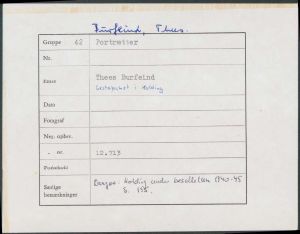 Burfeind, Thees.
Gruppe 62 Portretter
Nr.
Emne Thees Burfeind
Gestapochef i Kolding
Data
Fotograf
Neg. opbev.
- nr. 12.713
Særlige bemærkninger Kolding under besættelsen 1940-45
S. 155.